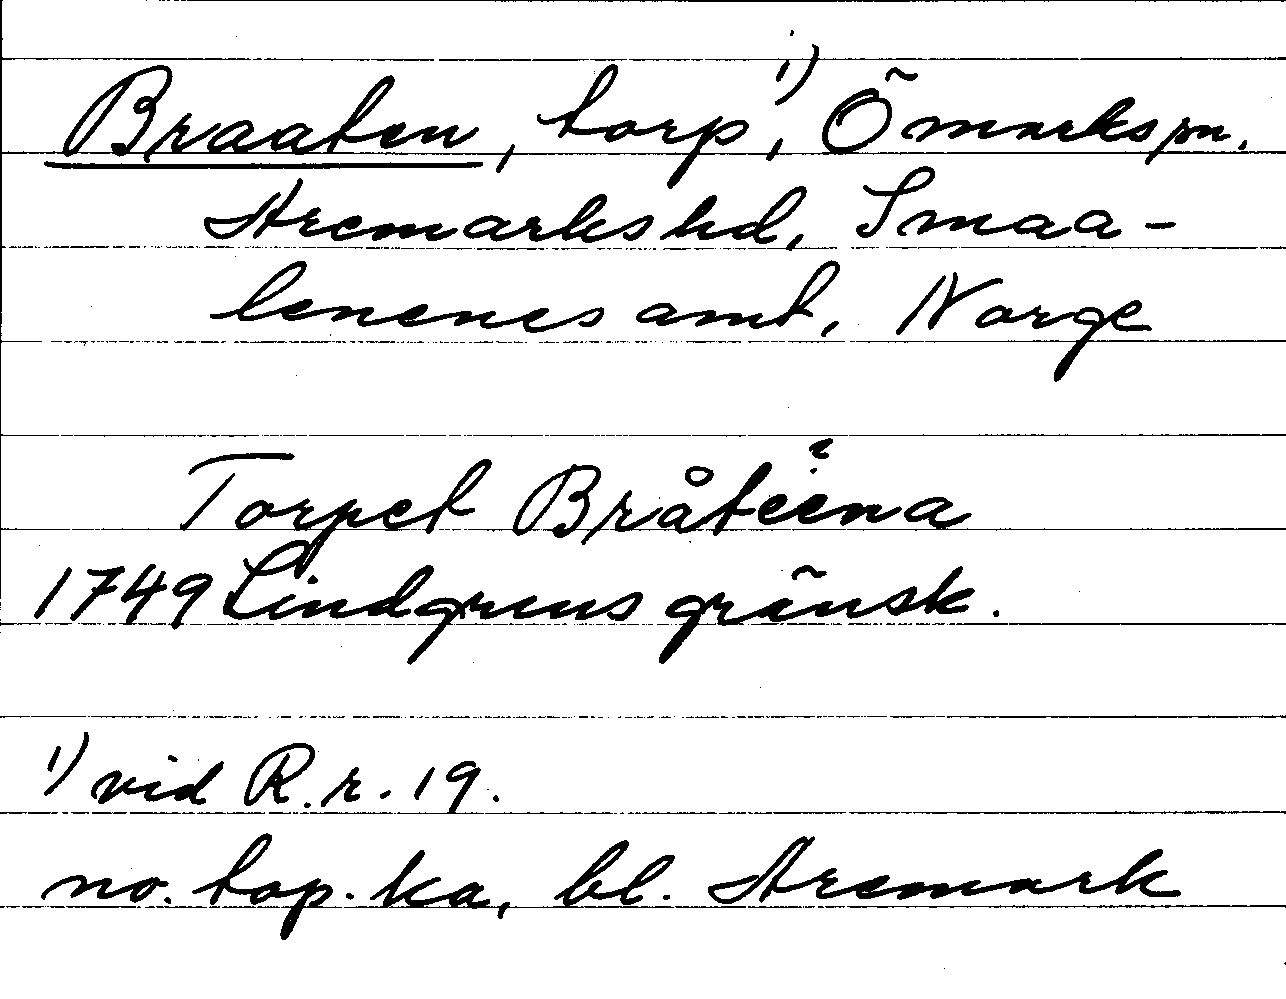 Braaten, torp,¹⁾ Ömarks sn.
Aremarks hd, Smaa-
lenenes amt, Norge
Torpet Bråteena
1749 Lindgrens gränsk.
¹⁾ vid R.r. 19.
no. top. ka, bl. Aremark